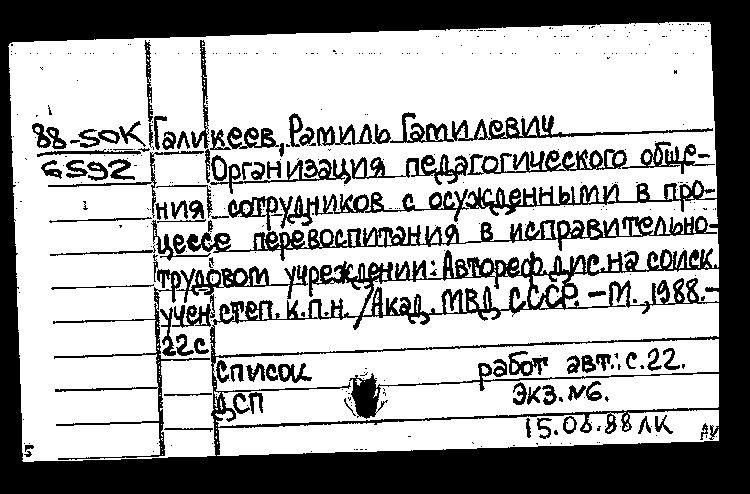 88-5ОК Галикеев, Рамиль Гатилевич.
6592 Организация педагогического обще-
ния сотрудников с осужденными в про-
цессе перевоспитания в исправительно-
трудовом учреждении: Автореф.дис.на соиск.
учен.степ. к.п.н. /Акад. МВД СССР. – М., 1988.–
22с
список работ авт.: с.22.
ДСП Экз.№6.
15.08.88 ЛК АУ
5